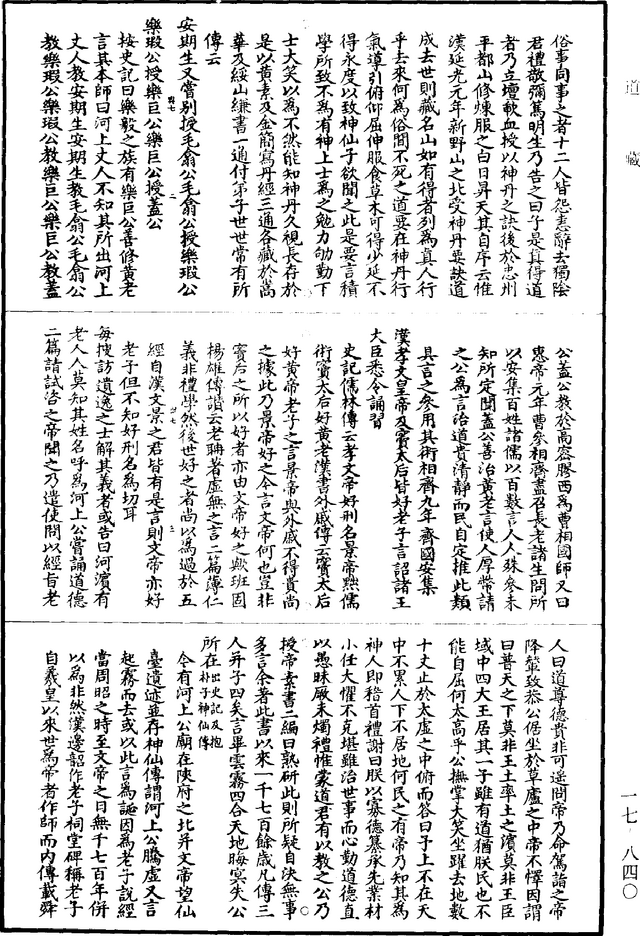 道藏
俗事同事之者十二人皆怨恚辭去獨陰
君禮敬彌篤明生乃告之曰子是真得道
者乃立壇歃血授以神丹之訣後於忠州
平都山修煉服之白日昇天其自序云惟
漢延光元年新野山之北受神丹要訣道
成去世則藏名山如有得者列為真人行
乎去來何為俗間不死之道要在神丹行
氣導引俯仰屈伸服食草木可得少延不
得永度以致神仙子欲聞之此是要言積
學所致不為有神上士為之勉力劬勤下
士大笑以為不然能知神丹久視長存於
是以黃素及金簡寫丹經三通各藏於嵩
華及綏山縑書一通付弟子世世常有所
傳云
安期生又嘗別授毛翕公毛翕公授樂瑕公
樂瑕公授樂巨公樂巨公授蓋公
按史記曰樂毅之族有樂巨公善修黃老
言其本師曰河上丈人不知其所出河上
丈人教安期生安期生教毛翕公毛翕公
教樂瑕公樂瑕公教樂巨公樂巨公教蓋
公蓋公教於高密膠西為曹相國師又曰
惠帝元年曹參相齊盡召長老諸生問所
以安集百姓諸儒以百數言人人殊參未
知所定聞蓋公善治黃老言使人厚幣請
之公為言治道貴清靜而民自定推此類
具言之參用其術相齊九年齊國安集
漢孝文皇帝及竇太后皆好老子言詔諸王
大臣悉令誦習
史記儒林傳云孝文帝好刑名景帝黜儒
術竇太后好黃老漢書外戚傳云竇太后
好黃帝老子之言景帝與外戚不得貴尚
之據此乃景帝好之今言文帝何也豈非
竇后之所以好者亦由文帝好之歟班固
楊雄傳讚云老聃著虛無之言二篇薄仁
義非禮學然後世好之者尚以為過於五
經自漢文景之君皆有是言則文帝亦好
老子但不知好刑名為切耳
每搜訪遺逸之士解其義者或告曰河濱有
老人人莫知其姓名呼為河上公嘗誦道德
二篇請試咨之帝聞之乃遣使問以經旨老
人曰道尊德貴非可遙問帝乃命駕詣之帝
降輦致恭公倨坐於草廬之中帝不懌因謂
曰普天之下莫非王土率土之濱莫非王臣
域中四大王居其一子雖有道猶朕民也不
能自屈何太高乎公撫掌大笑坐躍去地數
十丈止於太虛之中俯而答曰予上不在天
中不累人下不居地何民之有帝乃知其為
神人即稽首禮謝曰朕以寡德纂承先業材
小任大懼不克堪雖治世事而心勤道德直
以愚昧厥未燭禮惟蒙道君有以教之公乃
授帝素書二編曰熟研此則所疑自決無事
多言余著此書以來一千七百餘歲凡傳三
人并子四矣言畢雲霧四合天地晦冥失公
所在出史記及抱朴子神仙傳
今有河上公廟在陝府之北并文帝望仙
臺遺迹並存神仙傳謂河上公騰虛又言
起霧而去或以此言為誕因為老子說經
當周昭之時至文帝之日無千七百年併
以為非然漢邊韶作老子祠堂碑稱老子
自羲皇以來世為帝者作師而內傳載舜
一七·八四〇